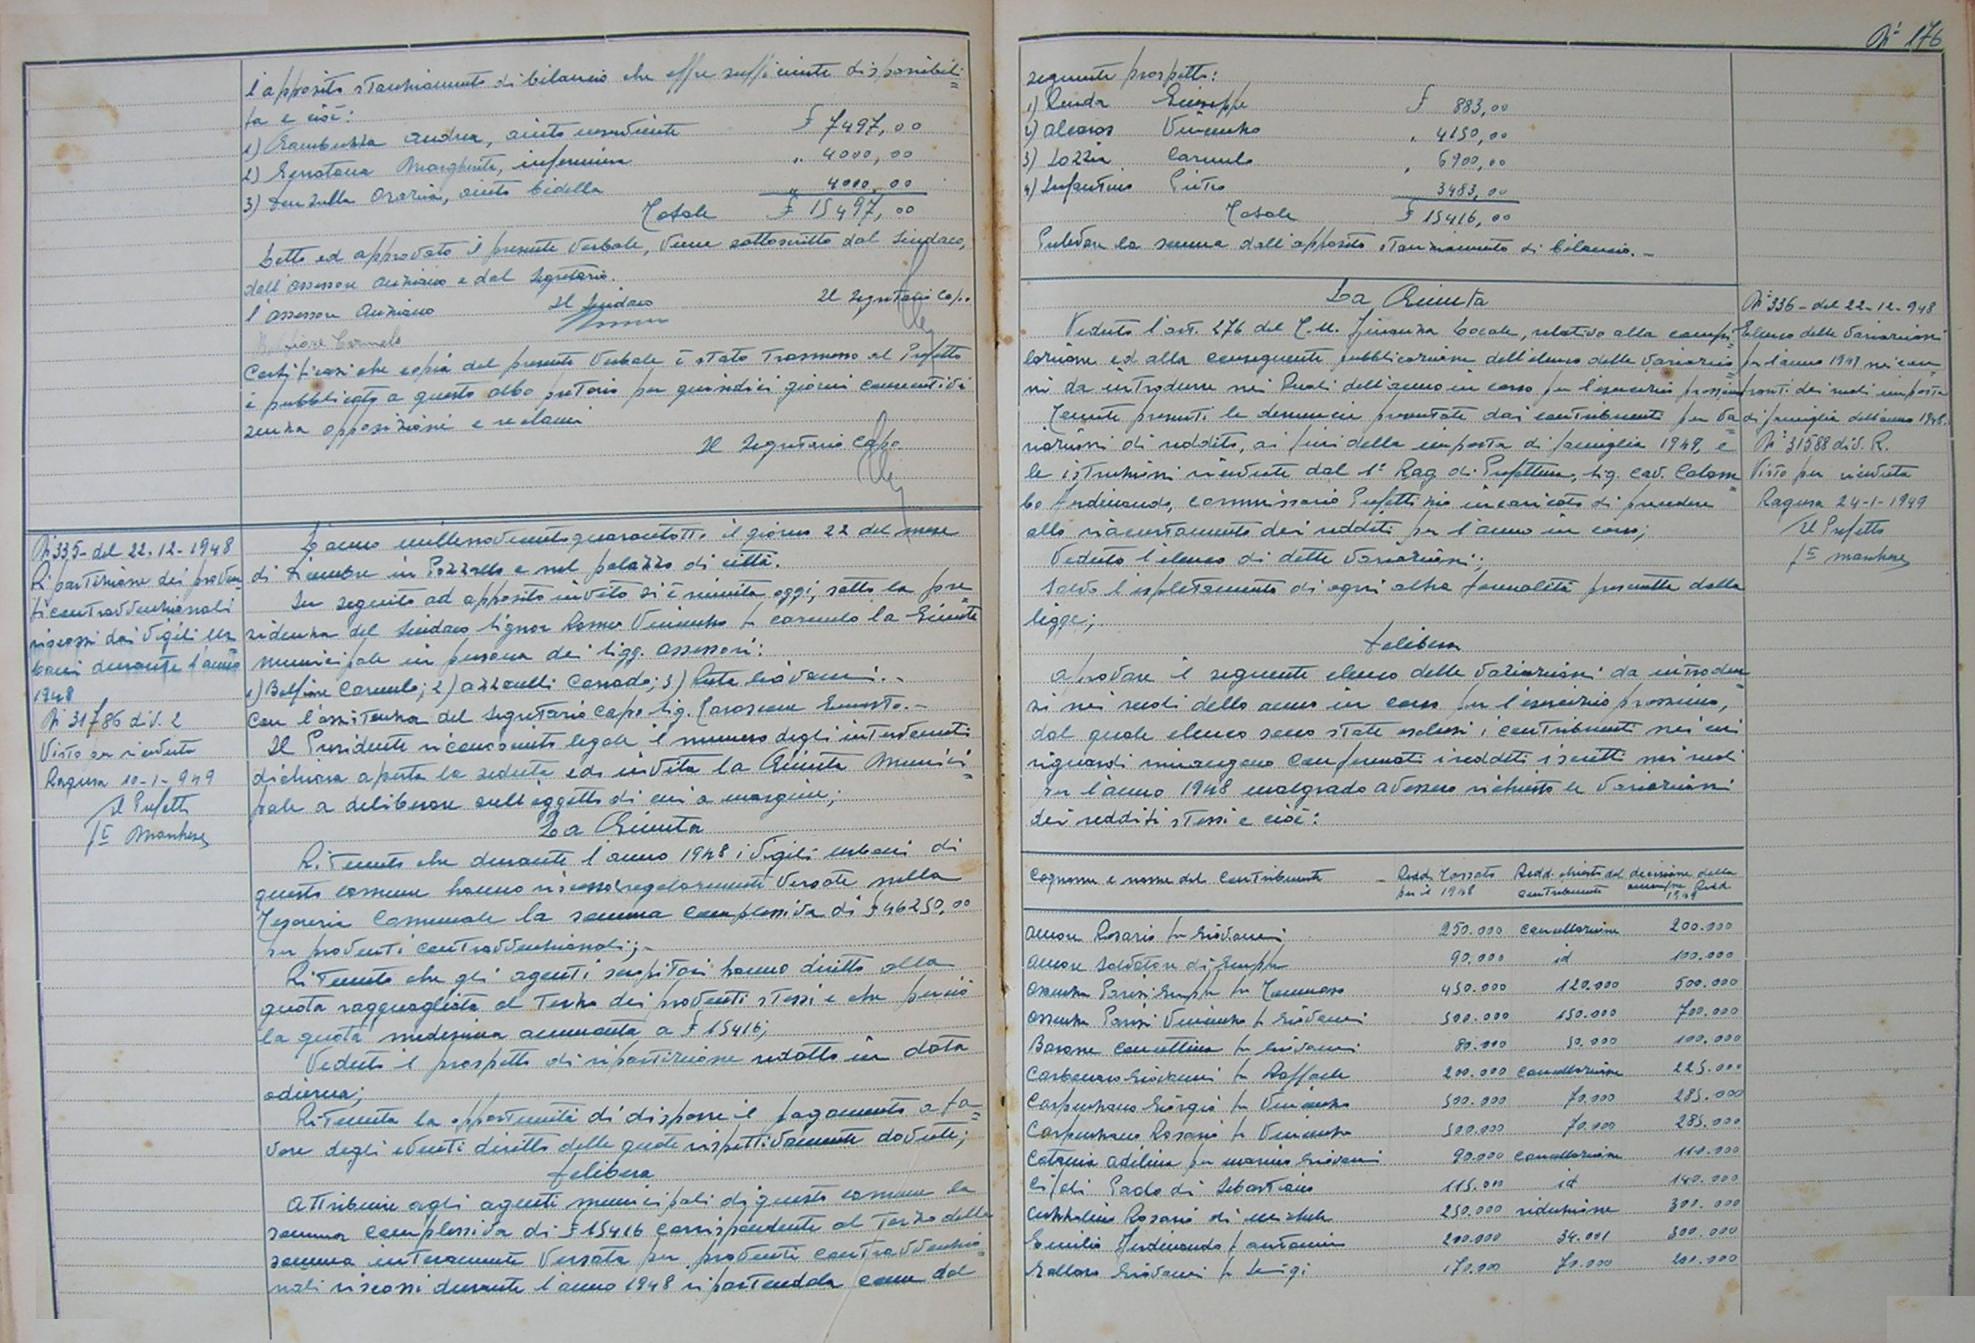 l'apposito stanziamento di bilancio che offre sufficiente disponibili=
tà e cioè:
1) Andrea, aiuto inserviente £ 7497,00
2) Margherita, infermiera " 4000,00
3) Orazia, aiuto bidella " 4000,00
Totale £ 15497,00
Letto ed approvato il presente verbale, viene sottoscritto dal Sindaco,
dall'assessore anziano e dal Segretario.
l'assessore anziano Il Sindaco Il Segretario Capo
Carmelo
Certificasi che copia del presente verbale è stato trasmesso al Prefetto
e pubblicato a questo albo pretorio per quindici giorni consecutivi
senza opposizioni e reclami
Il Segretario Capo
N° 335 - del 22-12-1948
Ripartizione dei proven
ti contravvenzionali
riscossi dai Vigili Ur
bani durante l'anno
1948
N° 31786 div. 2
Visto per ricevuta
Ragusa 10-1-949
Il Prefetto
L'anno millenovecentoquarantotto il giorno 22 del mese
di Dicembre in Pozzallo e nel palazzo di città.
In seguito ad apposito invito si è riunita, oggi, sotto la pre=
sidenza del Sindaco Signor Vincenzo fu Carmelo la Giunta
municipale in persona dei Sigg. assessori:
1) Carmelo; 2) Azzarelli Corrado; 3) Giovanni.-
Con l'assistenza del Segretario Capo Sig. Ernesto.-
Il Presidente riconosciuto legale il numero degli intervenuti
dichiara aperta la seduta ed invita la Giunta Munici=
pale a deliberare sull'oggetto di cui a margine;
La Giunta
Ritenuto che durante l'anno 1948 i Vigili urbani di
questo comune hanno riscosso regolarmente versate nella
Tesoreria Comunale la somma complessiva di £ 46250,00
per proventi contravvenzionali;-
Ritenuto che gli agenti scopritori hanno diritto alla
quota ragguagliata al terzo dei proventi stessi e che perciò
la quota medesima ammonta a £ 15416;
Veduto il prospetto di ripartizione redatto in data
odierna;
Ritenuta la opportunità di disporre il pagamento a fa=
vore degli aventi diritto delle quote rispettivamente dovute;
Delibera
Attribuire agli agenti municipali di questo comune la
somma complessiva di £ 15416 corrispondente al terzo della
somma interamente versata per proventi contravvenzio=
nali riscossi durante l'anno 1948 ripartendola come dal
N° 176
seguente prospetto:
1) Giuseppe £ 883,00
2) Vincenzo " 4150,00
3) Carmelo " 6900,00
4) Infantino Pietro 3483,00
Totale £ 15416,00
Prelevare la somma dall'apposito stanziamento di bilancio.-
La Giunta
Veduto l'art. 276 del T.U. Finanza Locale, relativo alla compi
lazione ed alla conseguente pubblicazione dell'elenco delle variazio
ni da introdurre nei Ruoli dell'anno in corso per l'esercizio prossimo
Tenute presenti le denuncie presentate dai contribuenti per va=
riazioni di reddito, ai fini della imposta di famiglia 1948, e
le istruzioni ricevute dal 1° Rag. di Prefettura, Sig. Cav. Colom
bo Ferdinando, commissario Prefettizio incaricato di procedere
allo riaccertamento dei redditi per l'anno in corso;
Veduto l'elenco di dette variazioni;
Salvo l'espletamento di ogni altra formalità prescritta dalla
legge;
Delibera
approvare il seguente elenco delle variazioni da introdur=
si nei ruoli dello anno in corso per l'esercizio prossimo,
dal quale elenco sono state esclusi i contribuenti nei cui
riguardi rimangono confermati i redditi iscritti nei ruoli
per l'anno 1948 malgrado avessero richiesto le variazioni
dei redditi stessi e cioè:
N° 336 - del 22-12-948
Elenco delle variazioni
per l'anno 1949 nei con
fronti dei ruoli imposta
di famiglia dell'anno 1948.
N° 31588 div. R.
Visto per ricevuta
Ragusa 24-1-1949
Il Prefetto
Cognome e nome del Contribuente - Redd. Tassato per il 1948 Redd. chiesto dal contribuente decisione della 1949
Amore Rosario fu Giovanni 250.000 cancellazione 200.000
Amore Salvatore di 90.000 id 100.000
Assenza Parisi fu Tommaso 450.000 120.000 500.000
Assenza Parisi Vincenzo fu Giovanni 500.000 150.000 700.000
Barone Concettina fu Giovanni 80.000 50.000 100.000
Carbonaro Giovanni fu Raffaele 200.000 cancellazione 225.000
Carpenzano Giorgio fu Vincenzo 500.000 70.000 285.000
Carpenzano Rosario fu Vincenzo 500.000 70.000 285.000
Catania Adelina per marino Giovanni 90.000 cancellazione 110.000
Paolo di Sebastiano 115.000 id 140.000
Rosario di Michele 250.000 riduzione 300.000
Ferdinando fu Antonino 200.000 34.001 300.000
Giovanni fu Luigi 170.000 70.000 200.000